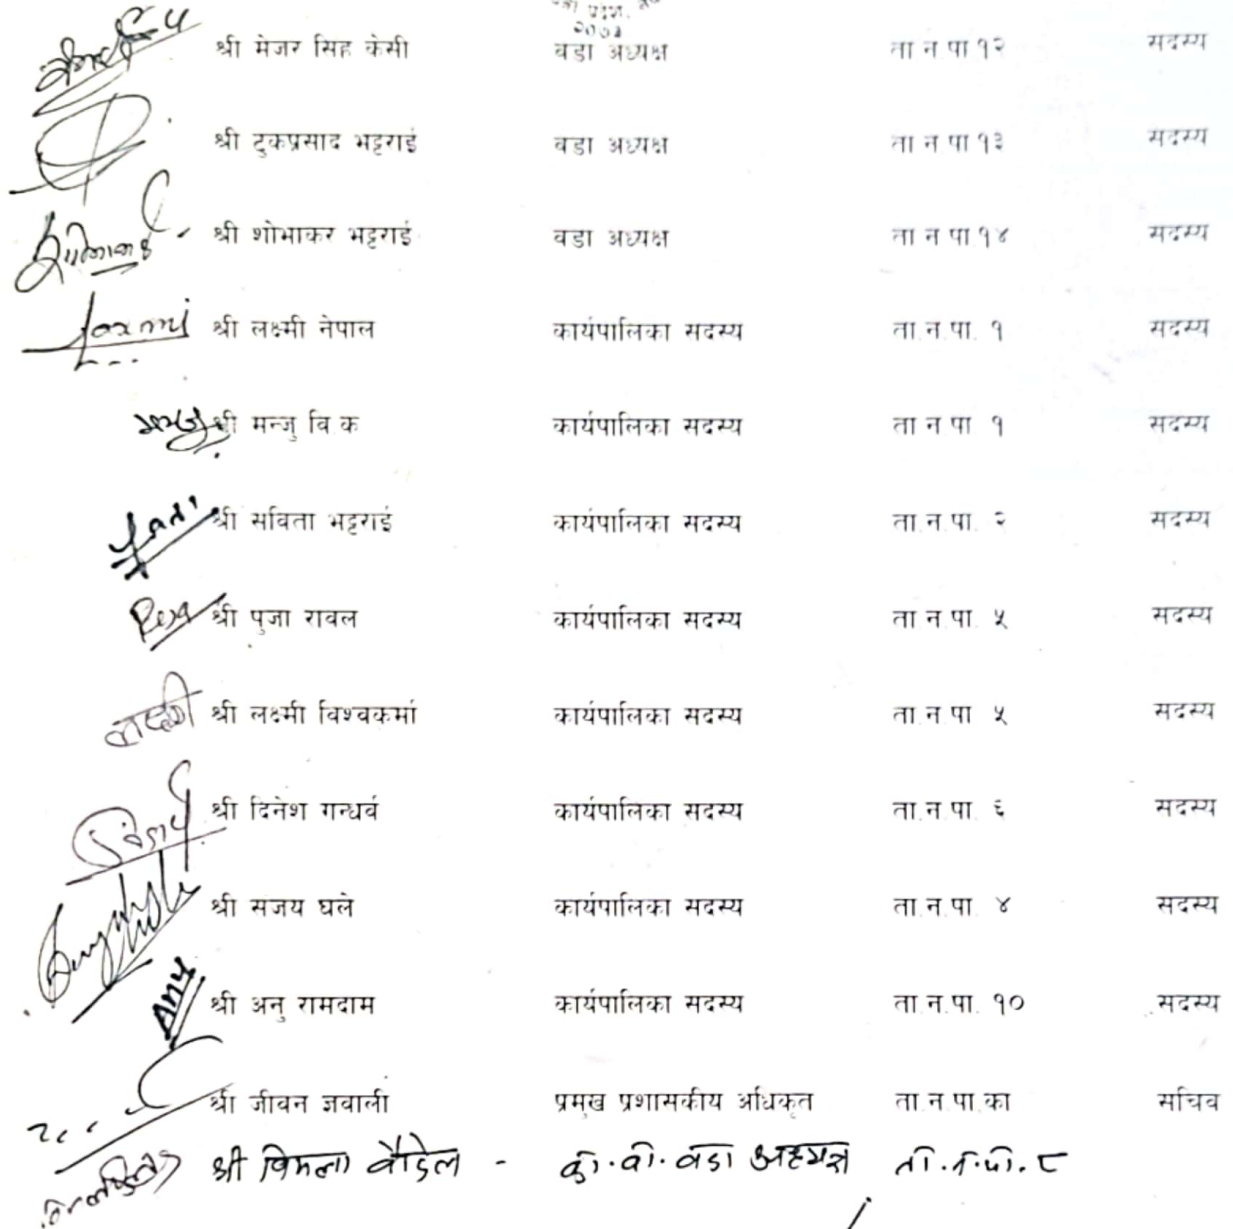 २०७३
श्री मेजर सिह केसी वडा अध्यक्ष ता न पा १२ सदस्य
श्री टुकप्रसाद भट्टराई वडा अध्यक्ष ता न पा १३ सदस्य
श्री शोभाकर भट्टराई वडा अध्यक्ष ता न पा १४ सदस्य
laxmi श्री लक्ष्मी नेपाल कार्यपालिका सदस्य ता.न.पा. १ सदस्य
मन्जु श्री मन्जु वि क कार्यपालिका सदस्य ता न पा १ सदस्य
श्री सविता भट्टराई कार्यपालिका सदस्य ता.न.पा. २ सदस्य
श्री पुजा रावल कार्यपालिका सदस्य ता.न.पा. ५ सदस्य
श्री लक्ष्मी विश्वकर्मा कार्यपालिका सदस्य ता.न.पा ५ सदस्य
श्री दिनेश गन्धर्व कार्यपालिका सदस्य ता.न.पा. ६ सदस्य
श्री संजय घले कार्यपालिका सदस्य ता.न.पा. ४ सदस्य
Anu श्री अनु रामदाम कार्यपालिका सदस्य ता.न.पा. १० सदस्य
श्री जीवन ज्ञवाली प्रमुख प्रशासकीय अधिकृत ता.न.पा.का सचिव
श्री विमला पौडेल - का.वा. वडा अध्यक्ष ता.न.पा. ८